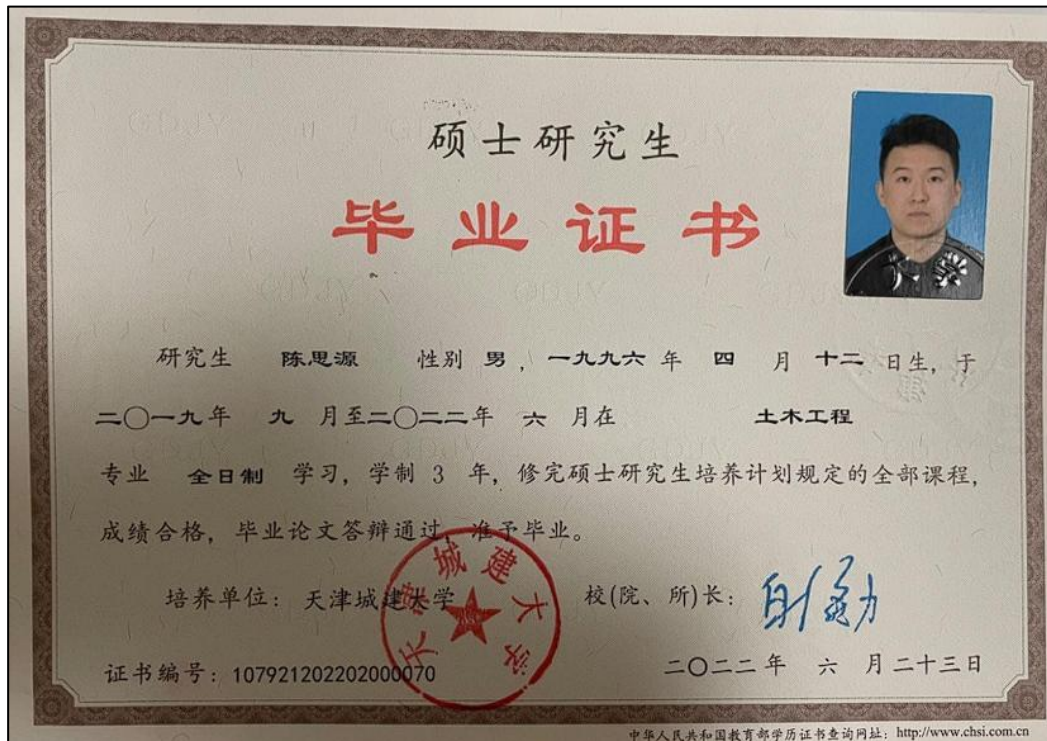 硕士研究生
毕业证书
研究生 陈思源 性别 男，一九九六 年 四 月 十二 日生，于
二〇一九年 九 月至二〇二二年 六 月在 土木工程
专业 全日制 学习，学制 3 年，修完硕士研究生培养计划规定的全部课程，
成绩合格，毕业论文答辩通过，准予毕业。
培养单位：天津城建大学 校(院、所)长：
天津城建大学
证书编号：107921202202000070 二〇二二年 六 月二十三日
中华人民共和国教育部学历证书查询网址：http://www.chsi.com.cn